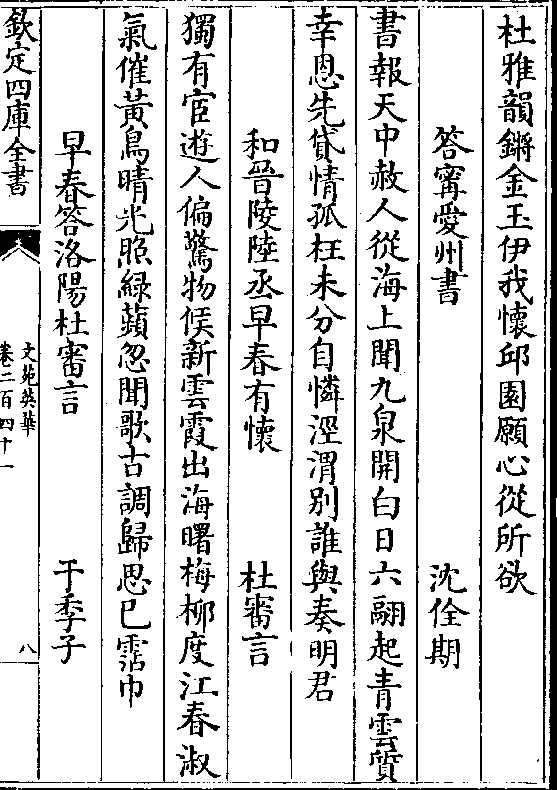 杜雅韻鏘金玉伊我懷邱園願心從所欲
答寗愛州書 沈佺期
書報天中赦人從海上聞九泉開白日六翮起青雲質
幸恩先貸情孤枉未分自憐涇渭別誰與奏明君
和晉陵陸丞早春有懷 杜審言
獨有宦遊人偏驚物候新雲霞出海曙梅柳度江春淑
氣催黃鳥晴光照綠蘋忽聞歌古調歸思已霑巾
早春答洛陽杜審言 于季子
欽定四庫全書
文苑英華
卷二百四十一
八